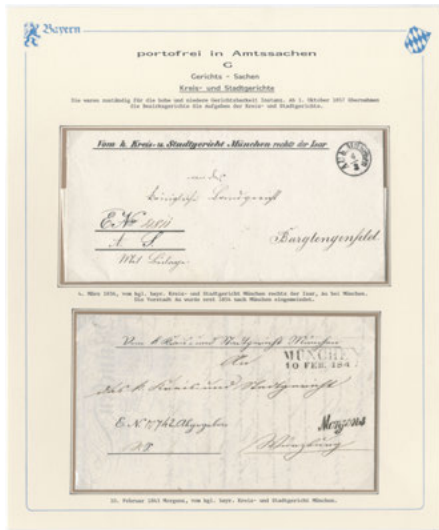 Bayern
portofrei in Amtssachen
G
Gerichts - Sachen
Kreis- und Stadtgerichte
Sie waren zuständig für die hohe und niedere Gerichtsbarkeit Instanz. Ab 1. Oktober 1857 übernahmen
die Bezirksgerichte die Aufgaben der Kreis- und Stadtgerichte.
Vom k. Kreis- u. Stadtgericht München rechts der Isar
AU b. MÜNCHEN
4
3
an das
königliche Landgericht
E.No
A S
Mit Beilage
Burglengenfeld.
4. März 1856, vom kgl. bayr. Kreis- und Stadtgericht München rechts der Isar, Au bei München.
Die Vorstadt Au wurde erst 1854 nach München eingemeindet.
Vom k Kreis und Stadtgericht München
An
MÜNCHEN
10 FEB. 184
das k Kreis und Stadtgericht
E. N. 7742 Abgegeben
Morgens
Würzburg
10. Februar 1843 Morgens, vom kgl. bayr. Kreis- und Stadtgericht München.